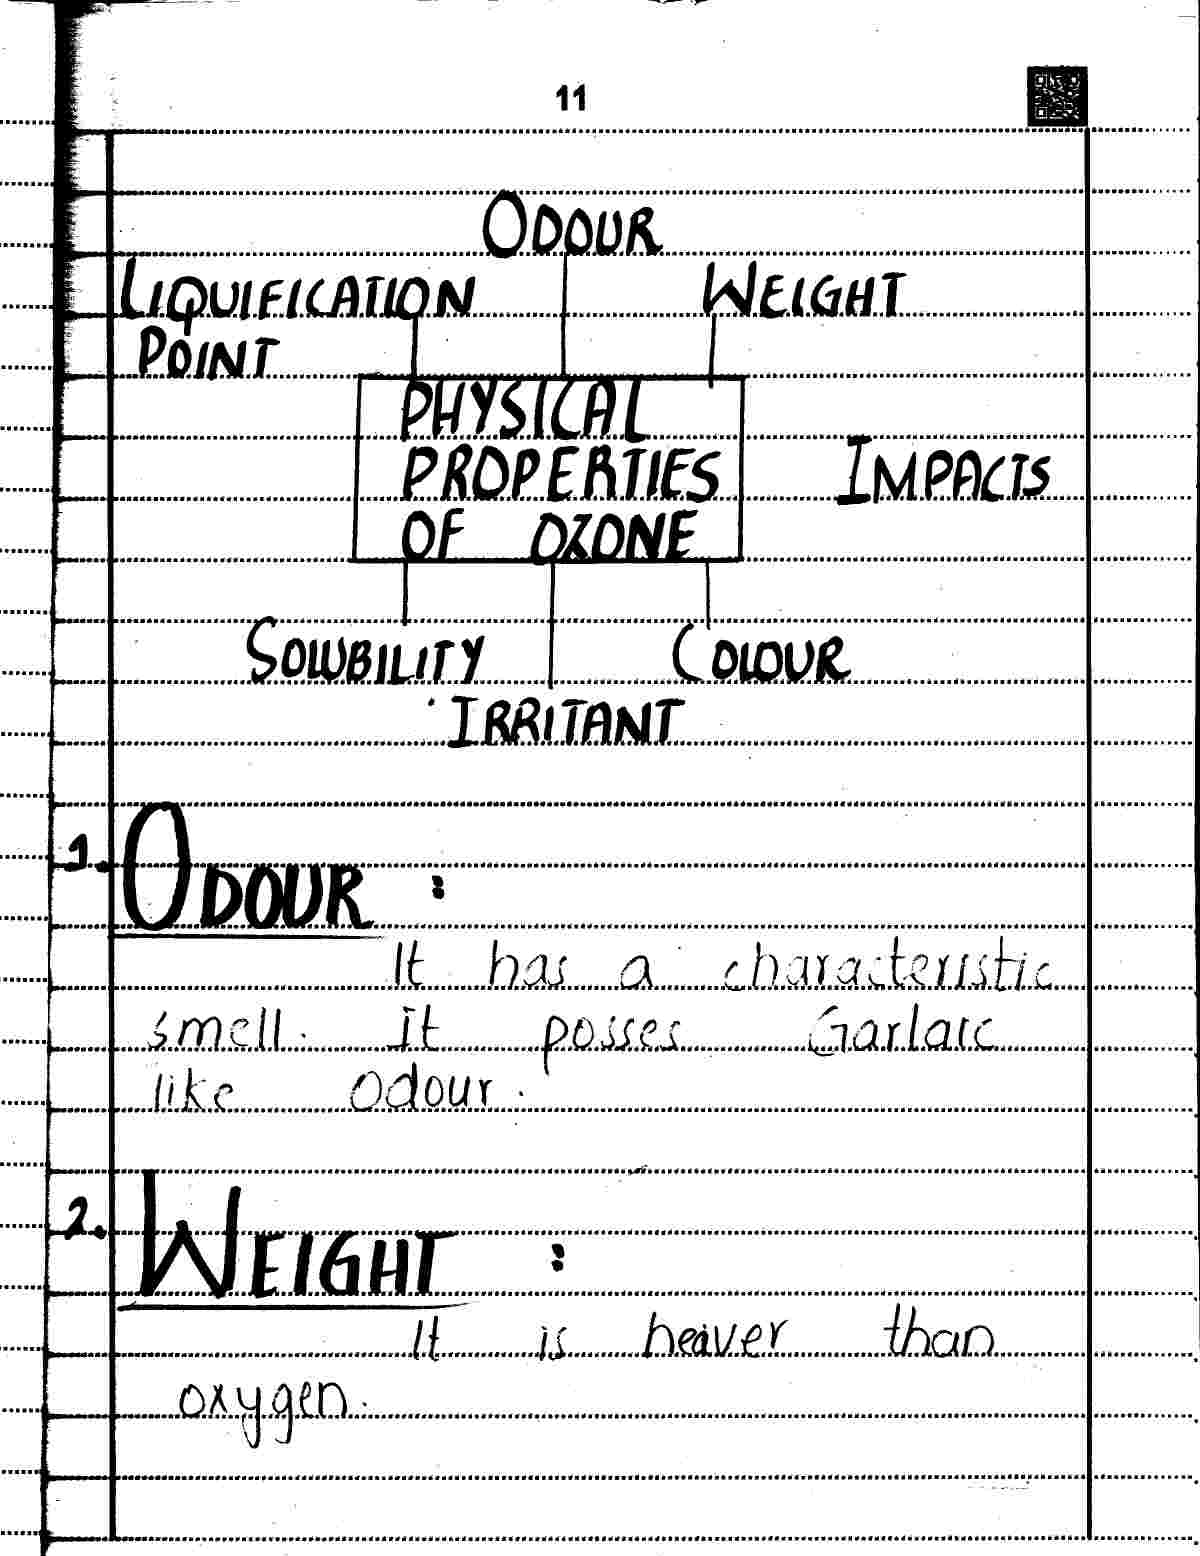 11
ODOUR
LIQUIFICATION WEIGHT
POINT
PHYSICAL
PROPERTIES IMPACTS
OF OZONE
SOLUBILITY COLOUR
IRRITANT
1. ODOUR :
It has a characteristic
smell. It posses Garlaic
like Odour.
2. WEIGHT :
It is heaiver than
oxygen.